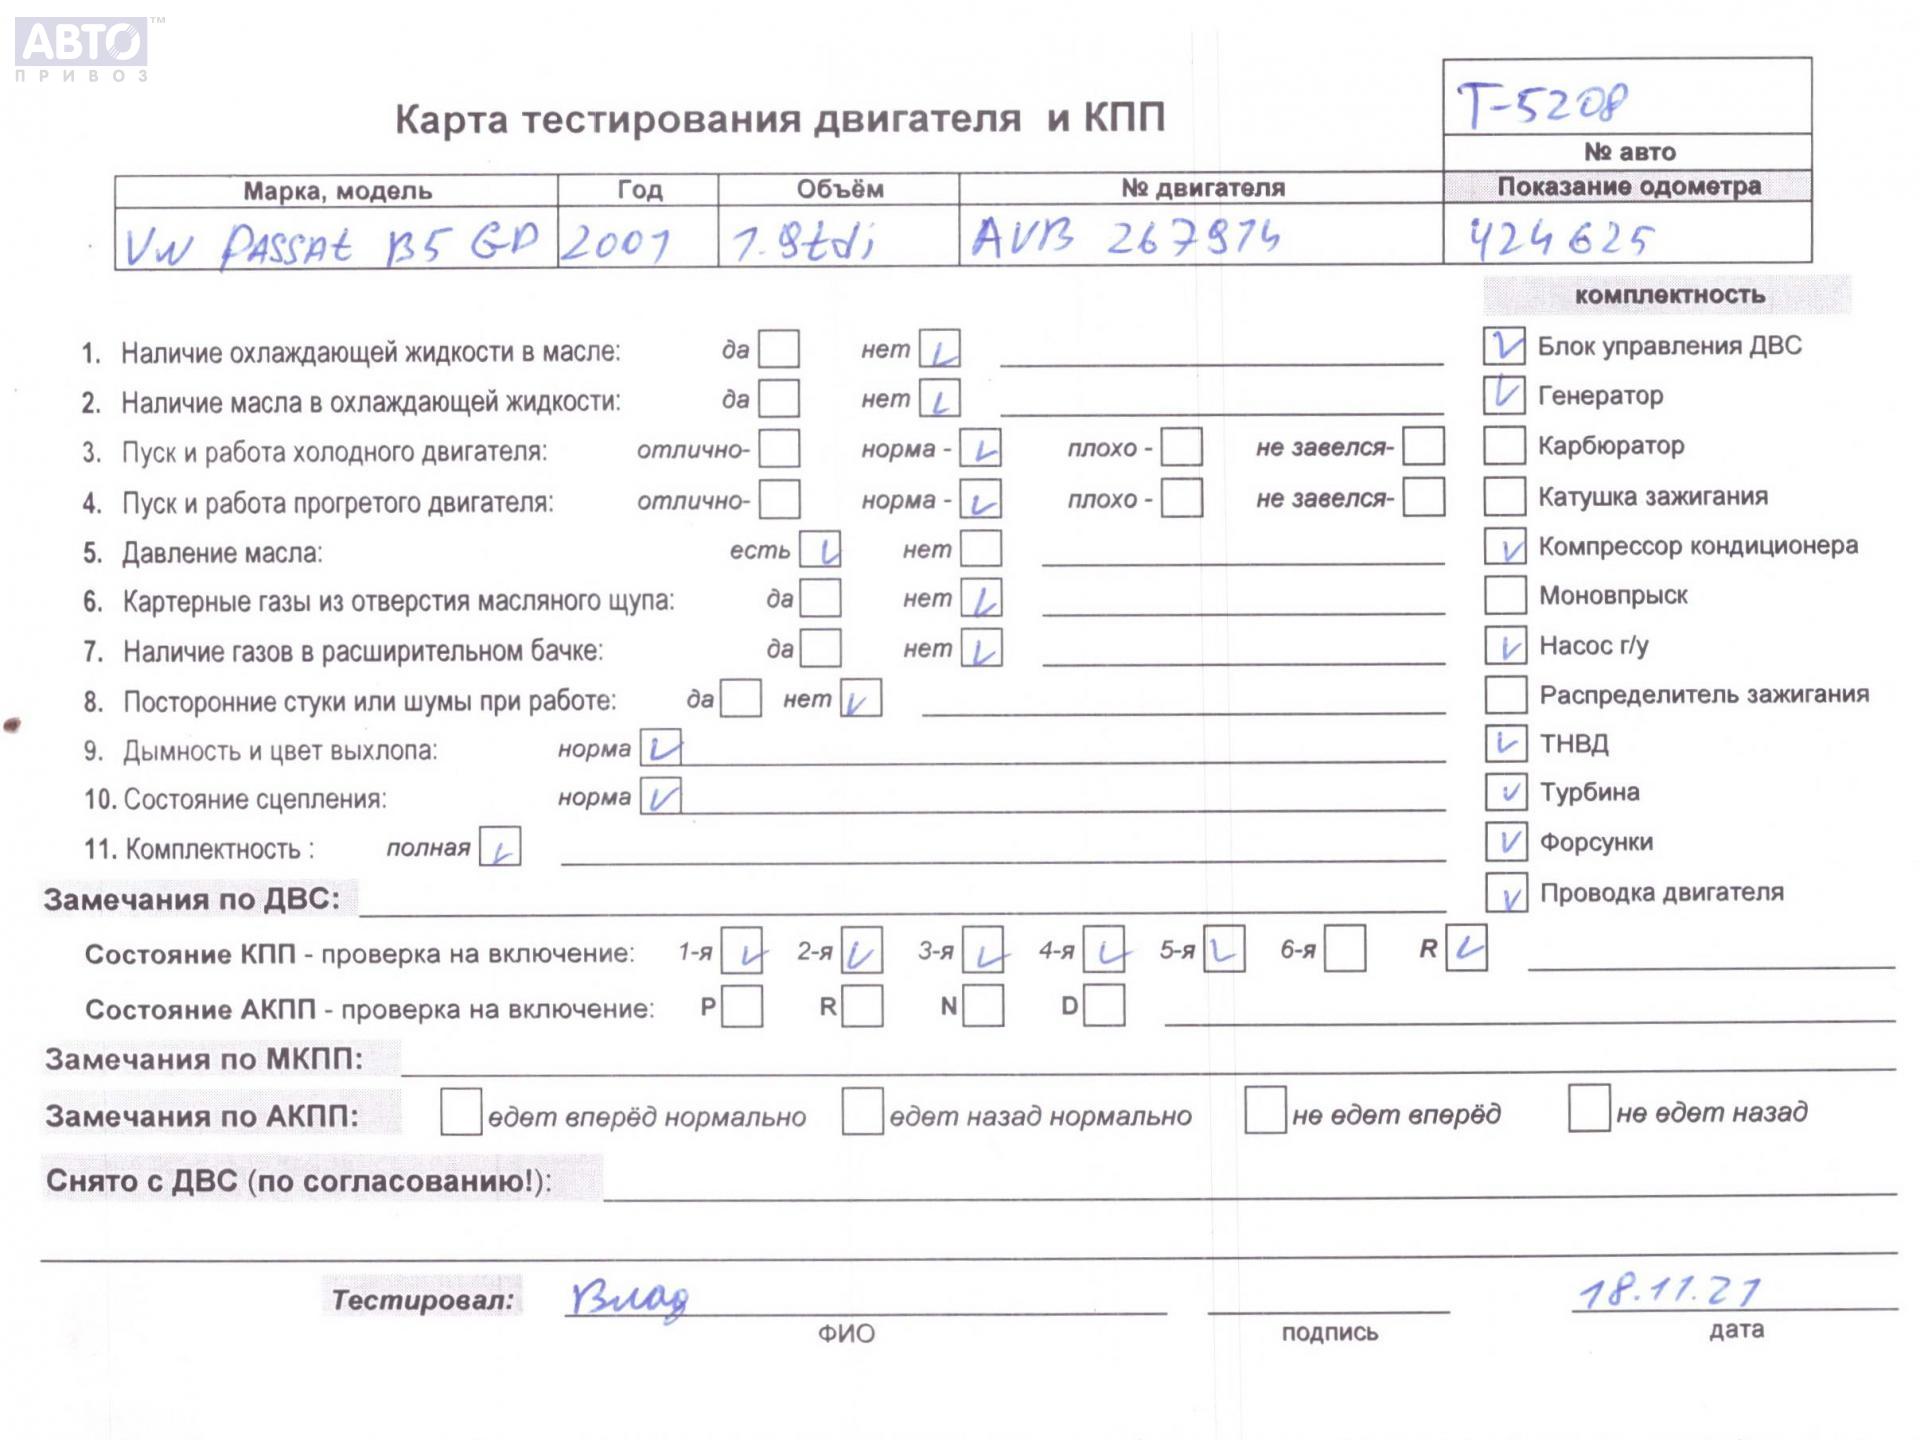 АВТО™
ПРИВОЗ
Т-5208
Карта тестирования двигателя и КПП
№ авто
Марка, модель Год Объём № двигателя Показание одометра
VW PASSAt B5 GP 2001 1.9tdi AVB 267914 424625
комплектность
1. Наличие охлаждающей жидкости в масле: да нет Блок управления ДВС
2. Наличие масла в охлаждающей жидкости: да нет Генератор
3. Пуск и работа холодного двигателя: отлично- норма - плохо - не завелся- Карбюратор
4. Пуск и работа прогретого двигателя: отлично- норма - плохо - не завелся- Катушка зажигания
5. Давление масла: есть нет Компрессор кондиционера
6. Картерные газы из отверстия масляного щупа: да нет Моновпрыск
7. Наличие газов в расширительном бачке: да нет Насос г/у
8. Посторонние стуки или шумы при работе: да нет Распределитель зажигания
9. Дымность и цвет выхлопа: норма ТНВД
10. Состояние сцепления: норма Турбина
11. Комплектность : полная Форсунки
Замечания по ДВС: Проводка двигателя
Состояние КПП - проверка на включение: 1-я 2-я 3-я 4-я 5-я 6-я R
Состояние АКПП - проверка на включение: P R N D
Замечания по МКПП:
Замечания по АКПП: едет вперёд нормально едет назад нормально не едет вперёд не едет назад
Снято с ДВС (по согласованию!):
Тестировал: Влад 18.11.21
ФИО подпись дата